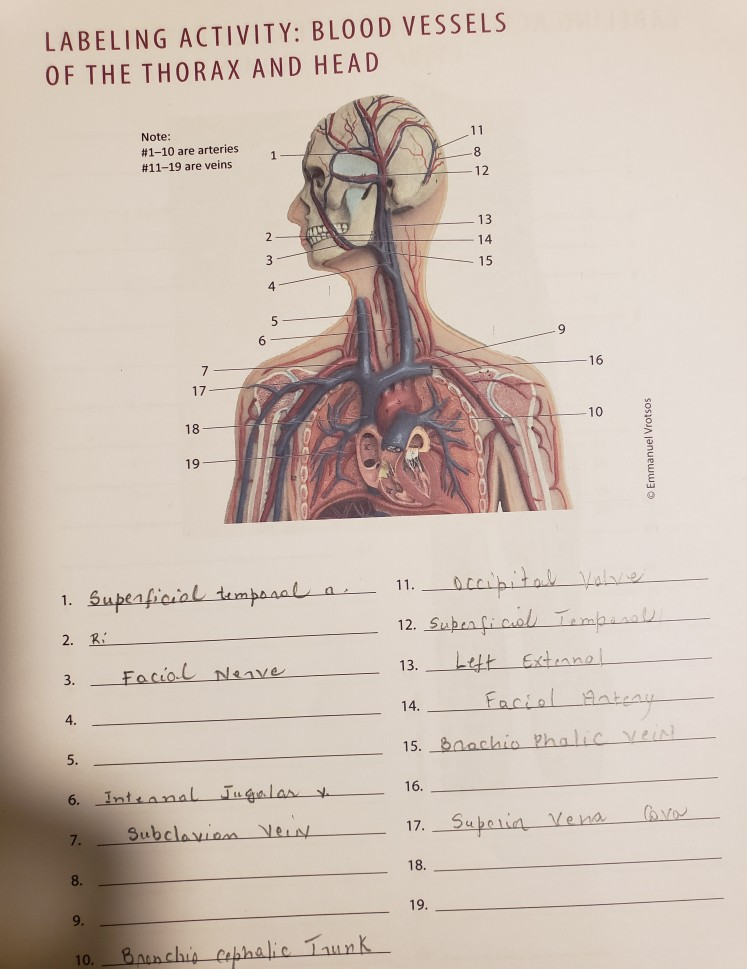 LABELING ACTIVITY: BLOOD VESSELS
OF THE THORAX AND HEAD
Note:
#1–10 are arteries
#11–19 are veins
1
11
8
12
2
13
14
3
15
4
5
6
9
7
16
17
10
18
19
© Emmanuel Vrotsos
1. Superficial temporal a.
2. Ri
3. Facial Nerve
4.
5.
6. Internal Jugalar v.
7. Subclavian Vein
8.
9.
10. Bronchio cephalic Trunk
11. Occipital Valve
12. Superficial Temporal
13. Left External
14. Facial Artery
15. Brachio Phalic vein
16.
17. Superior Vena Cova
18.
19.